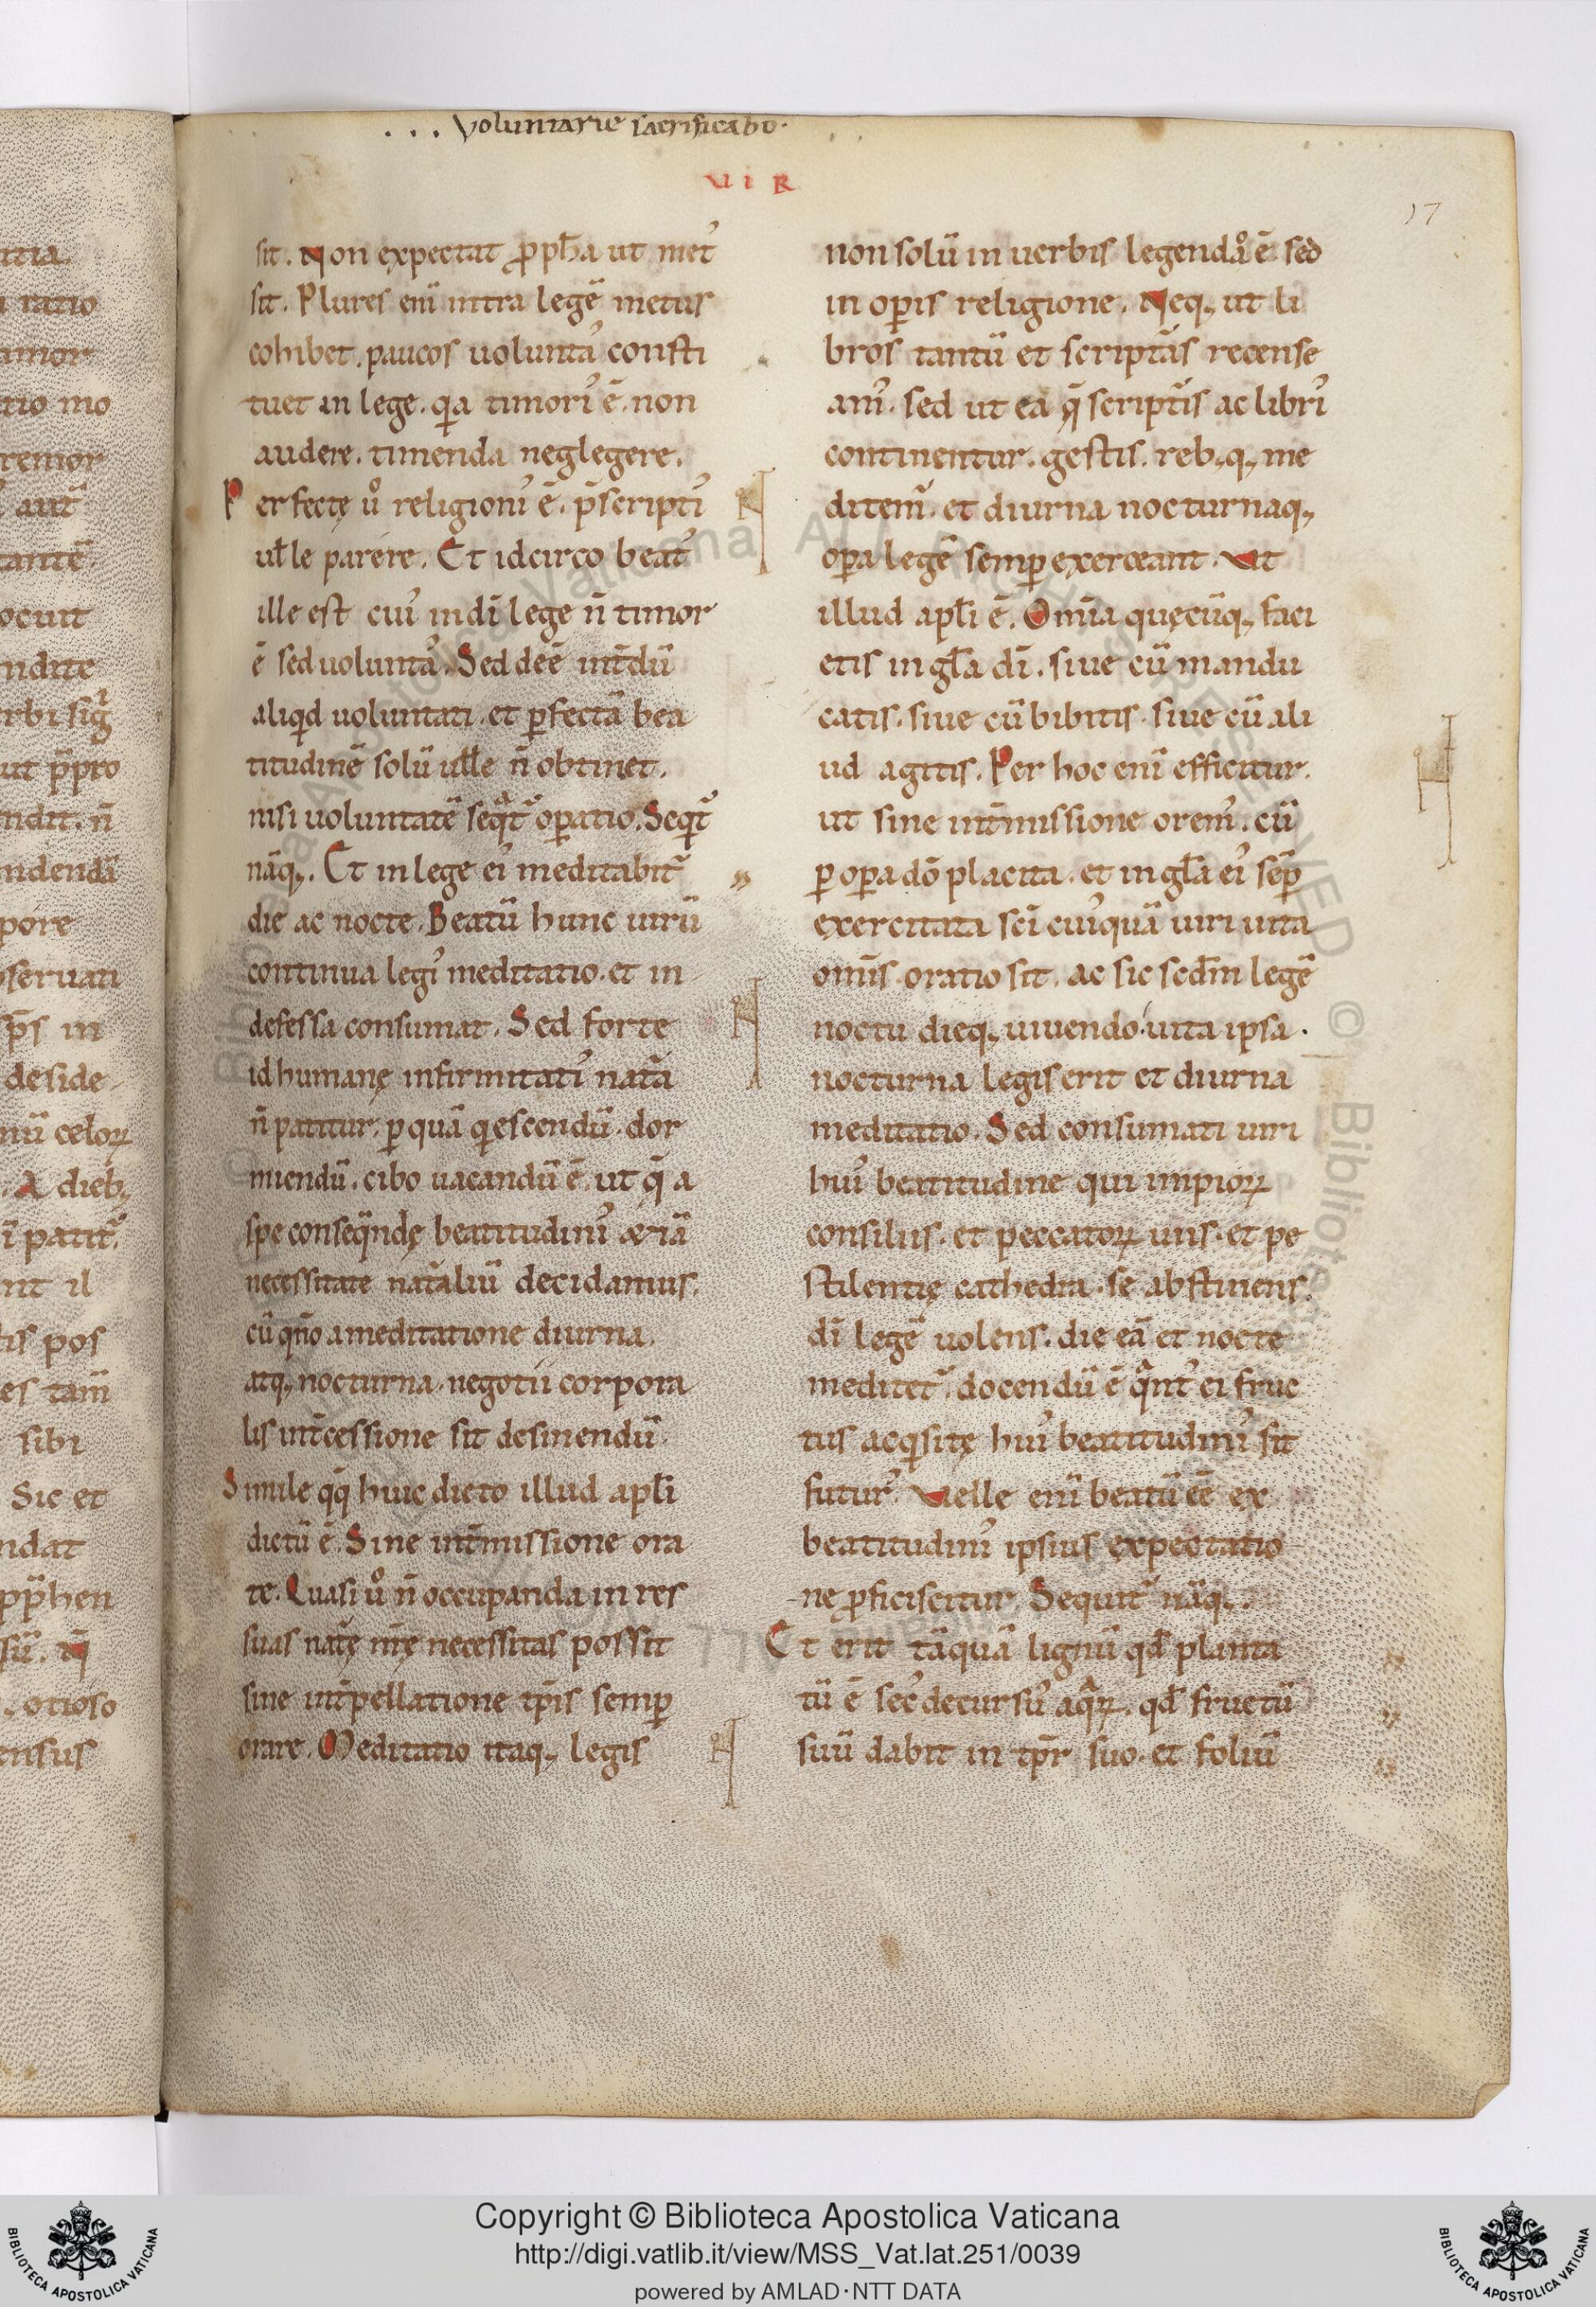 ... voluntarie sacrificabo.
VIR
17
sit. Non expectat ꝓph̄a ut met᾽
sit. Plures enī intra legē metus
cohibet. paucos uolunta᾽ consti
tuet in lege. qa timori᾽ ē. non
audere. timenda neglegere.
Perfectę uo religioni᾽ ē. p̄scripti᾽
ull̄e parere. Et idcirco beat᾽
ille est cui᾽ in dī lege n̄ timor
ē sed uolunta᾽. Sed deē int̄dū
aliqd uoluntati. et ꝑfectā bea
titudinē solū ull̄e n̄ obtinet.
nisi uoluntatē seqat̄ oꝑatio. Seqit̄
nāq;. Et in lege ei᾽ meditabit̄
die ac nocte. Beatū hunc uirū
continua legi᾽ meditatio. et in
defessa consumat. Sed forte
id humanę infirmitati᾽ nat̄a
n̄ patitur. ꝑ quā qiescendū. dor
miendū. cibo uacandū ē. ut q̄ a
spe conseqndę beatitudini᾽ etiā
necessitate nat̄aliū decidamus.
cū qn̄o a meditatione diurna.
atq; nocturna. negotii corpora
lis int̄cessione sit desinendū.
Simile qq̄ huic dicto illud apl̄i
dictū ē. Sine int̄missione ora
te. Quasi uo n̄ occupanda in res
suas nat̄ę nr̄ę necessitas possit
sine int̄pellatione tp̄is semꝑ
orare. Meditatio itaq; legis
non solū in uerbis legendao ē sed
in oꝑis religione. Neq; ut li
bros tantū et script̄as recense
am᾽. sed ut ea q̄ script̄is ac libri᾽
continentur. gestis. reb;q; me
ditem᾽. et diurna nocturnaq;
oꝑa legē semꝑ exerceant. Ut
illud apl̄i ē. Om̄ia quęcūq; faci
etis in gl̄a dī. siue cū mandu
catis. siue cū bibitis. siue cū ali
ud agitis. Per hoc enī efficitur.
ut sine int̄missione orem᾽. cū
ꝑ oꝑa dō placita. et in gl̄a ei᾽ seꝑ
exercitata sc̄i cui᾽quā uiri uita
om̄is oratio sit. ac sic scdm̄ legē
noctu dieq; uiuendo. uita ipsa.
nocturna legis erit et diurna
meditatio. Sed consumati uiri
hui᾽ beatitudine qui impioꝝ
consiliis. et peccatoꝝ uiis. et pe
stilentię cathedra. se abstinens.
dī legē uolens. die eā et nocte
meditet̄. docendū ē qant᾽ ei fruc
tus acqisitę hui᾽ beatitudini᾽ sit
futur᾽. Velle enī beatū eē ex
beatitudini᾽ ipsius expectatio
ne ꝓficiscitur. Sequit̄ nāq;.
Et erit tāquā lignū qd̄ planta
tū ē sec᾽ decursu᾽ aqaꝝ. qd̄ fructū
suū dabit in tp̄r suo. et foliū
Copyright © Biblioteca Apostolica Vaticana
http://digi.vatlib.it/view/MSS_Vat.lat.251/0039
powered by AMLAD·NTT DATA
BIBLIOTECA APOSTOLICA VATICANA
BIBLIOTECA APOSTOLICA VATICANA